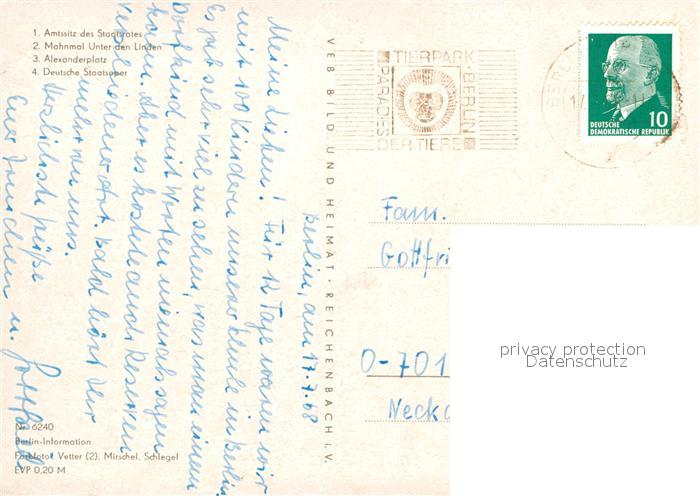 1. Amtssitz des Staatsrates
2. Mahnmal Unter den Linden
3. Alexanderplatz
4. Deutsche Staatsoper
Berlin, am 17.7.68
Meine Lieben! Für 12 Tage waren wir
mit 100 Kindern unserer Schule in Berlin.
Es gab sehr viel zu sehen, was man einem
Dorfkind mit Worten niemals sagen
kann. Aber es kostete auch Reserven
verschiedener Art. Bald hört Ihr
mehr von uns.
Herzlichste Grüße
Eure u.
Nr. 6240
Berlin-Information
Farbfoto: Vetter (2), Mirschel, Schlegel
EVP 0,20 M
VEB BILD UND HEIMAT · REICHENBACH i. V.
TIERPARK · BERLIN
PARADES DER TIERE
BERLIN
DEUTSCHE
DEMOKRATISCHE REPUBLIK
10
Fam.
Gottfri
0-701
Necka
privacy protection
Datenschutz